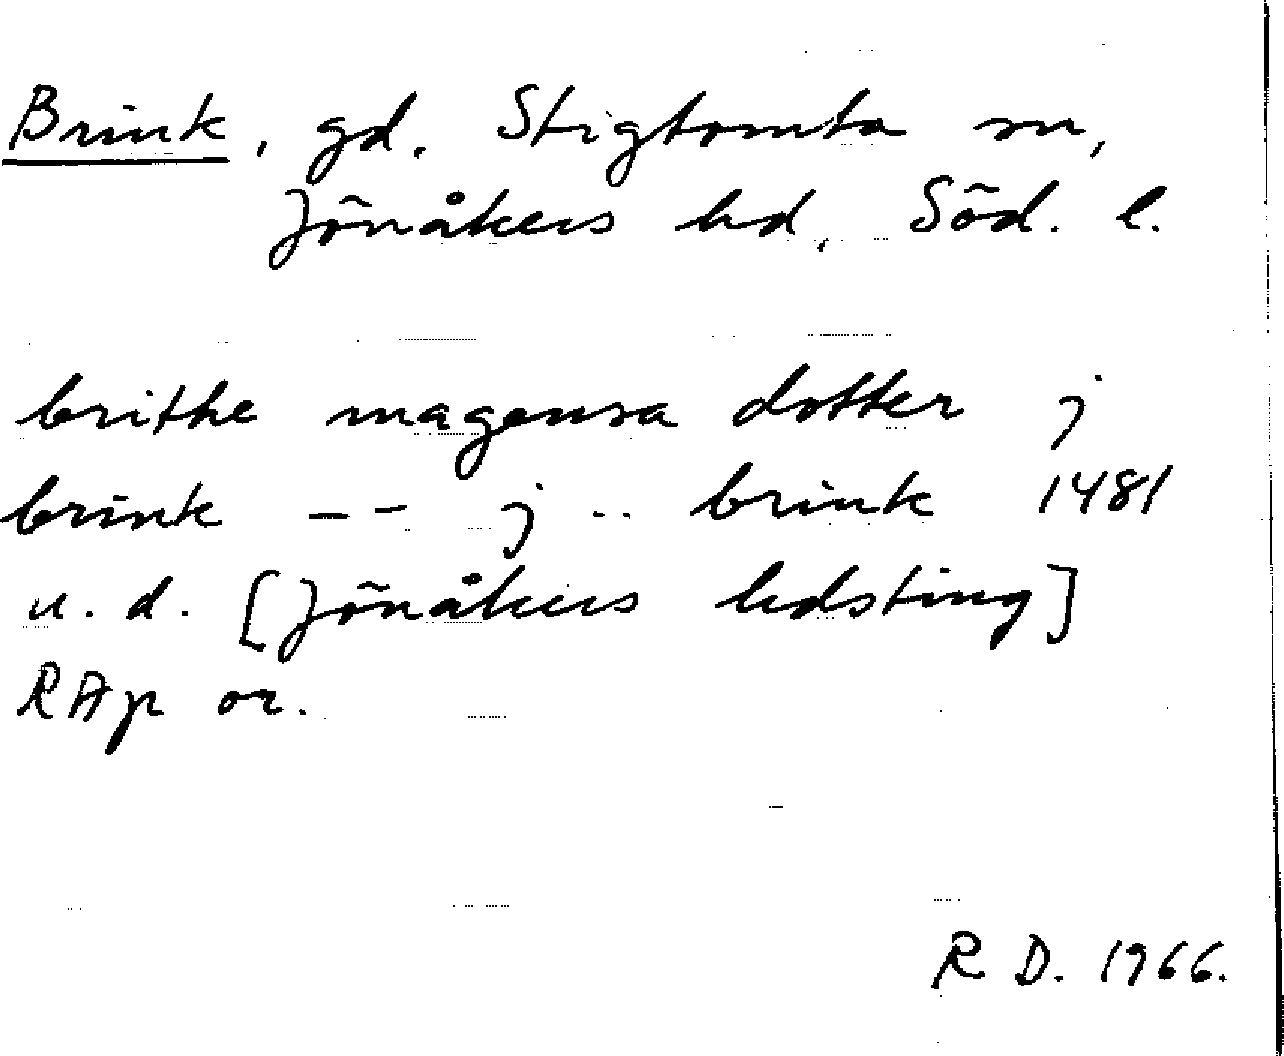 Brink, gd. Stigtomta sn,
Jönåkers hd, Söd. l.
brithe magensa dotter j
brink -- j -- brink 1481
u. d. [Jönåkers hdsting]
RAp or.
R D. 1966.